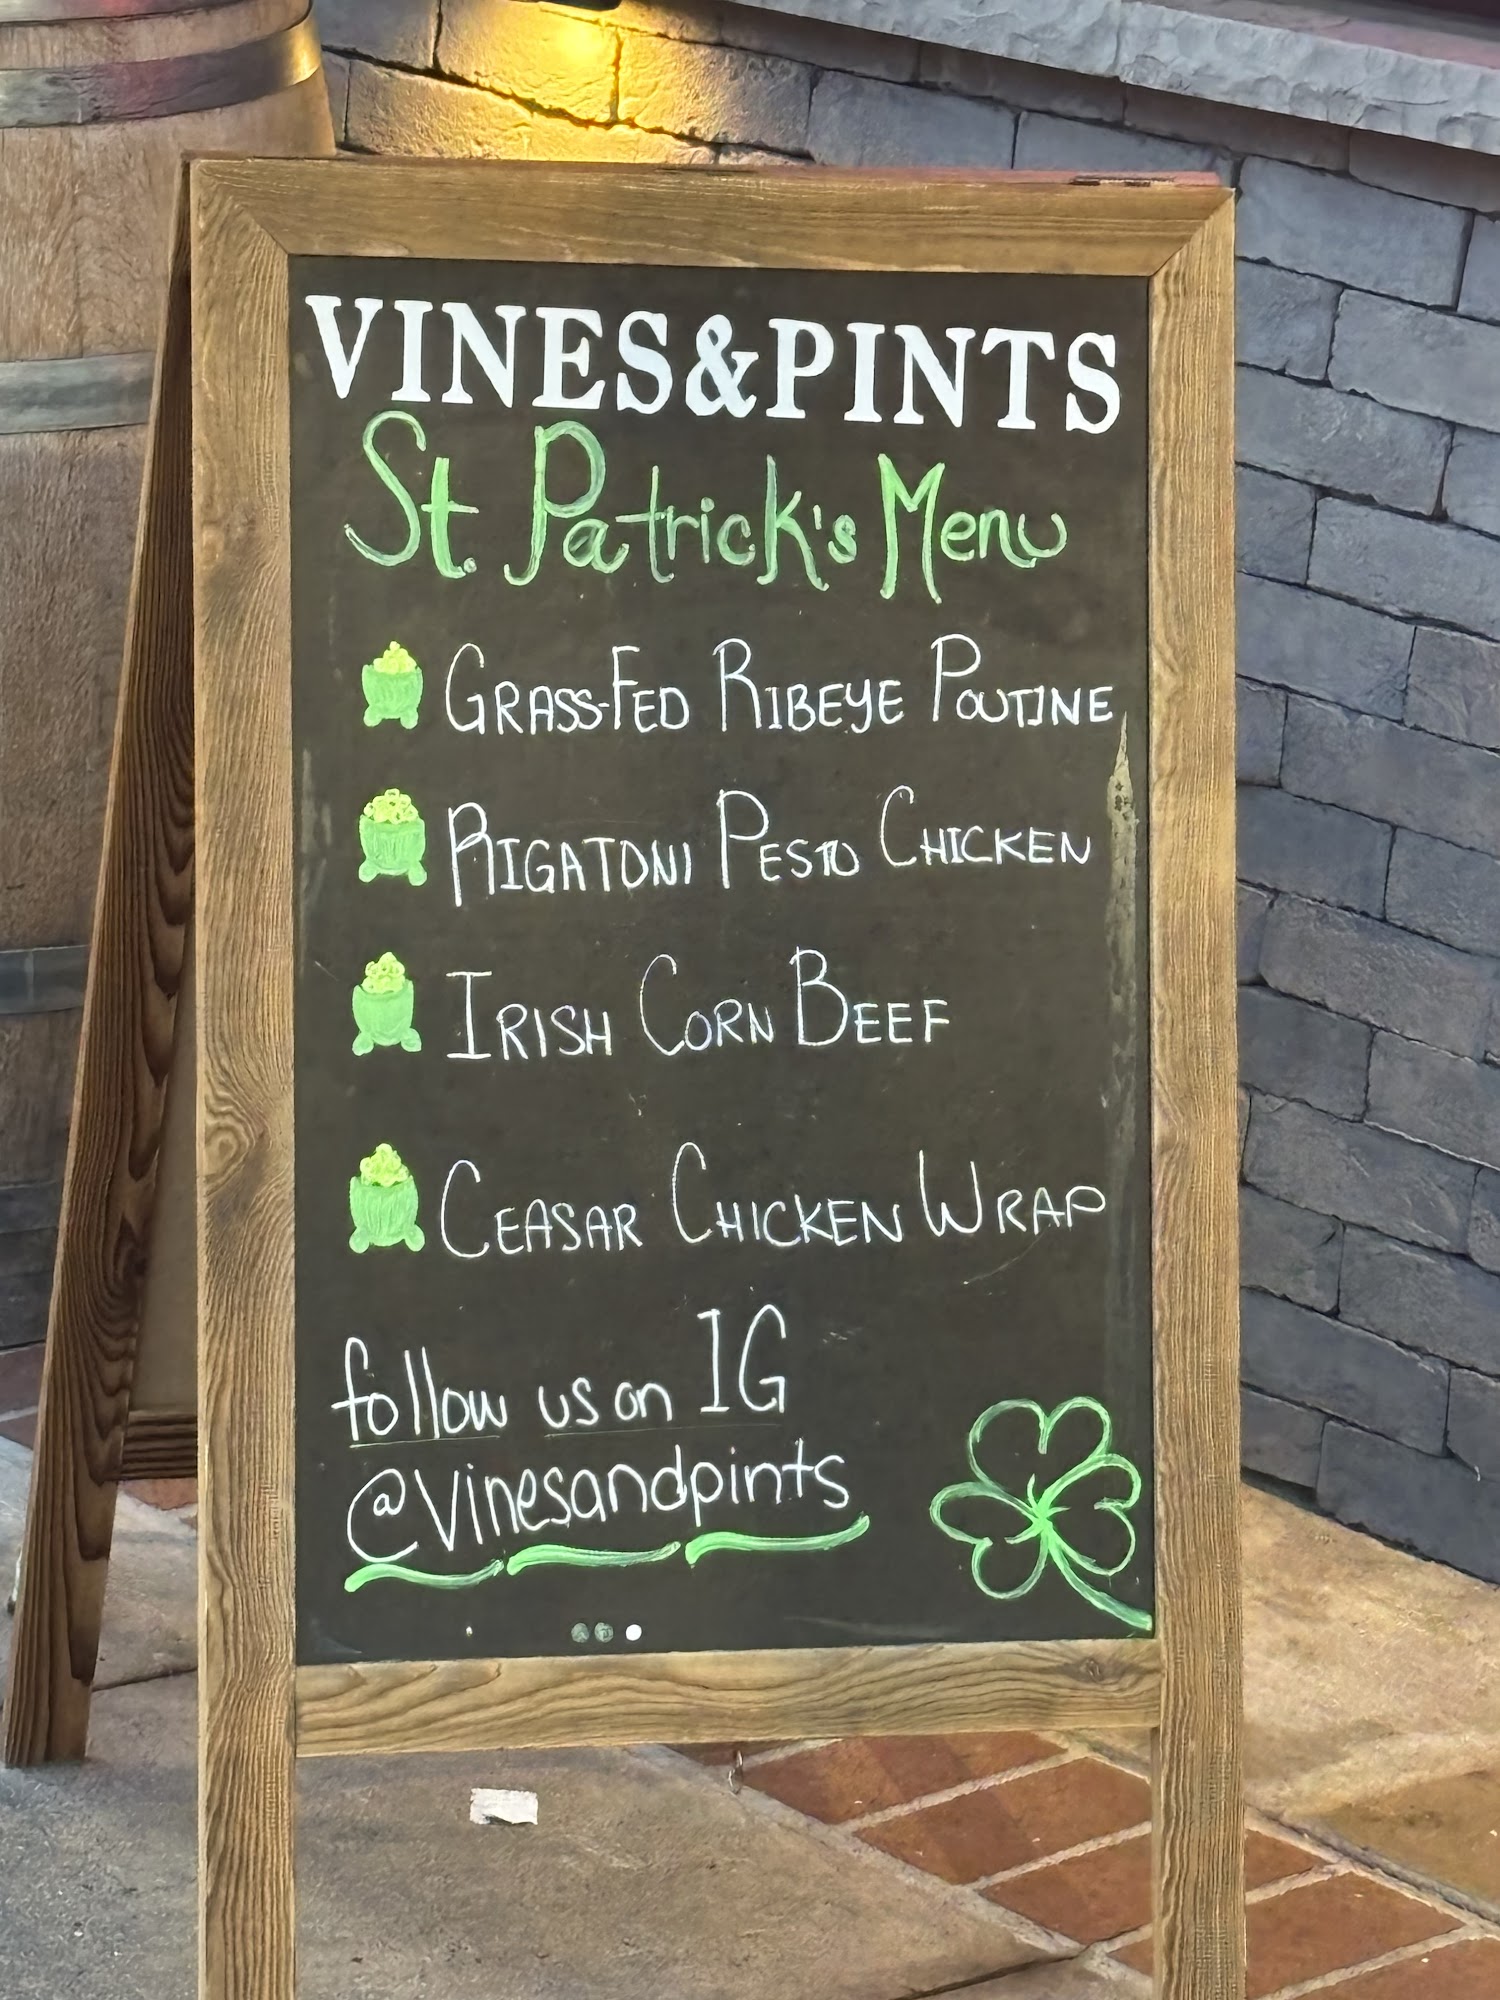 VINES&PINTS
St. Patrick's Menu
GRASS-FED RIBEYE POUTINE
RIGATONI PESTO CHICKEN
IRISH CORN BEEF
CEASAR CHICKEN WRAP
follow us on IG
@vinesandpints